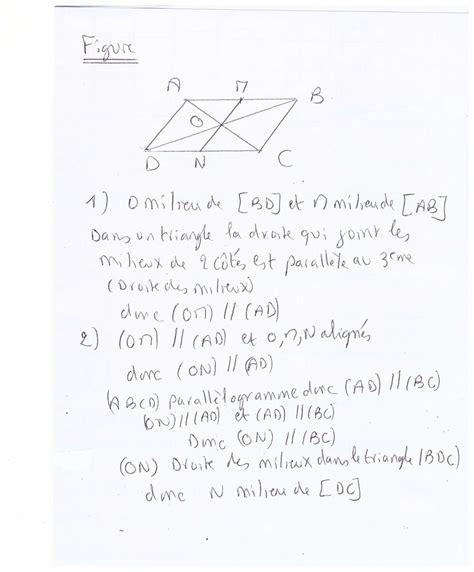 Figure
A M B
O
D N C
1) O milieu de [BD] et M milieu de [AB]
Dans un triangle la droite qui joint les
milieux de 2 côtés est parallèle au 3eme
(Droite des milieux)
donc (OM) // (AD)
2) (OM) // (AD) et O, M, N alignés
donc (ON) // (AD)
(ABCD) parallélogramme donc (AD) // (BC)
(ON) // (AD) et (AD) // (BC)
Donc (ON) // (BC)
(ON) Droite des milieux dans le triangle (BDC)
donc N milieu de [DC]